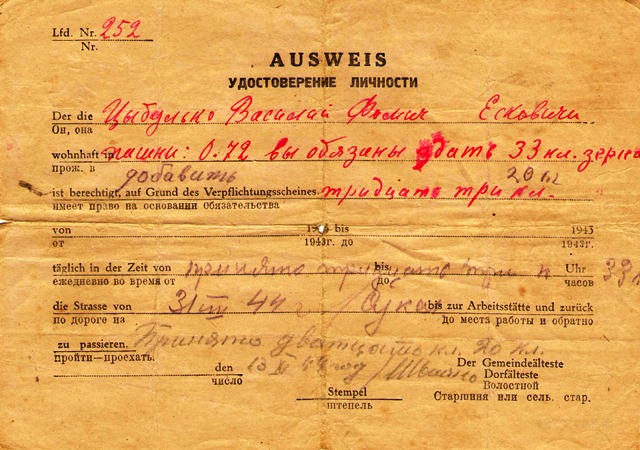 Lfd. Nr. 252
Nr.
AUSWEIS
УДОСТОВЕРЕНИЕ ЛИЧНОСТИ
Der die Цыбулько Василий Фомич Есковичи
Он, она
wohnhaft in пашни: 0.72 вы обязаны сдать 33 кл. зерна
прож. в добавить 20 кл
ist berechtigt, auf Grund des Verpflichtungsscheines тридцать три кл.
имеет право на основании обязательства
von 1943 bis 1943
от 1943г. до 1943г.
täglich in der Zeit von принято тридцать три к bis Uhr 33
ежедневно во время от до часов
die Strasse von 31 VIII 44 г bis zur Arbeitsstätte und zurück
по дороге на до места работы и обратно
zu passieren. Принято двадцать кл. 20 кл.
пройти—проехать.
den 13 XI 44 год Der Gemeindeälteste
число Dorfälteste
Волостной
Stempel Старшина или сель. стар.
штепель